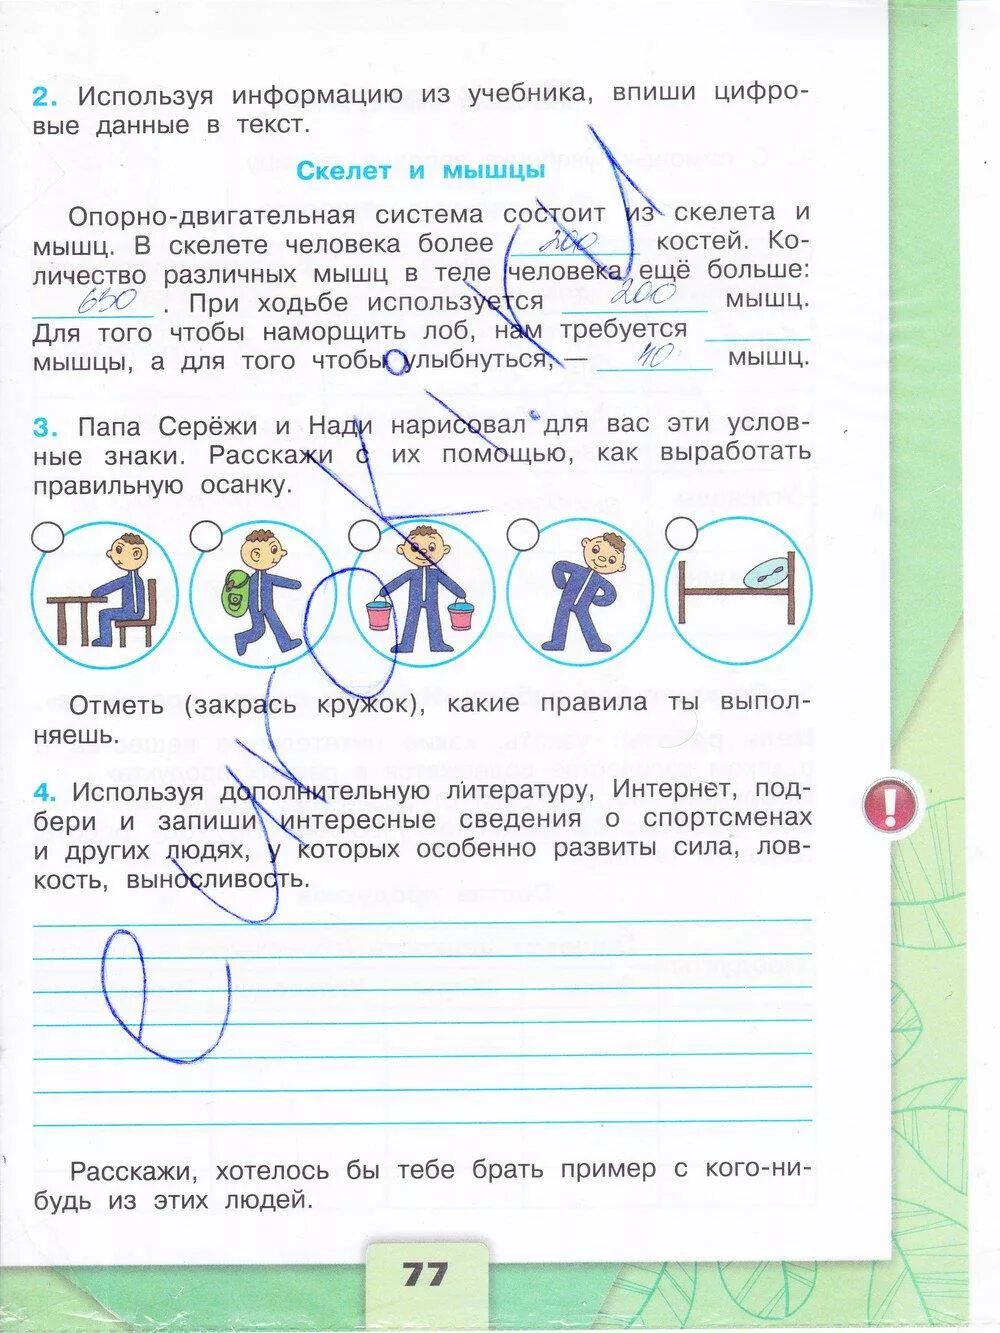 2. Используя информацию из учебника, впиши цифро-
вые данные в текст.
Скелет и мышцы
Опорно-двигательная система состоит из скелета и
мышц. В скелете человека более 200 костей. Ко-
личество различных мышц в теле человека ещё больше:
650. При ходьбе используется 200 мышц.
Для того чтобы наморщить лоб, нам требуется
мышцы, а для того чтобы улыбнуться, — мышц.
3. Папа Серёжи и Нади нарисовал для вас эти услов-
ные знаки. Расскажи с их помощью, как выработать
правильную осанку.
Отметь (закрась кружок), какие правила ты выпол-
няешь.
4. Используя дополнительную литературу, Интернет, под-
бери и запиши интересные сведения о спортсменах
и других людях, у которых особенно развиты сила, лов-
кость, выносливость.
!
Расскажи, хотелось бы тебе брать пример с кого-ни-
будь из этих людей.
77